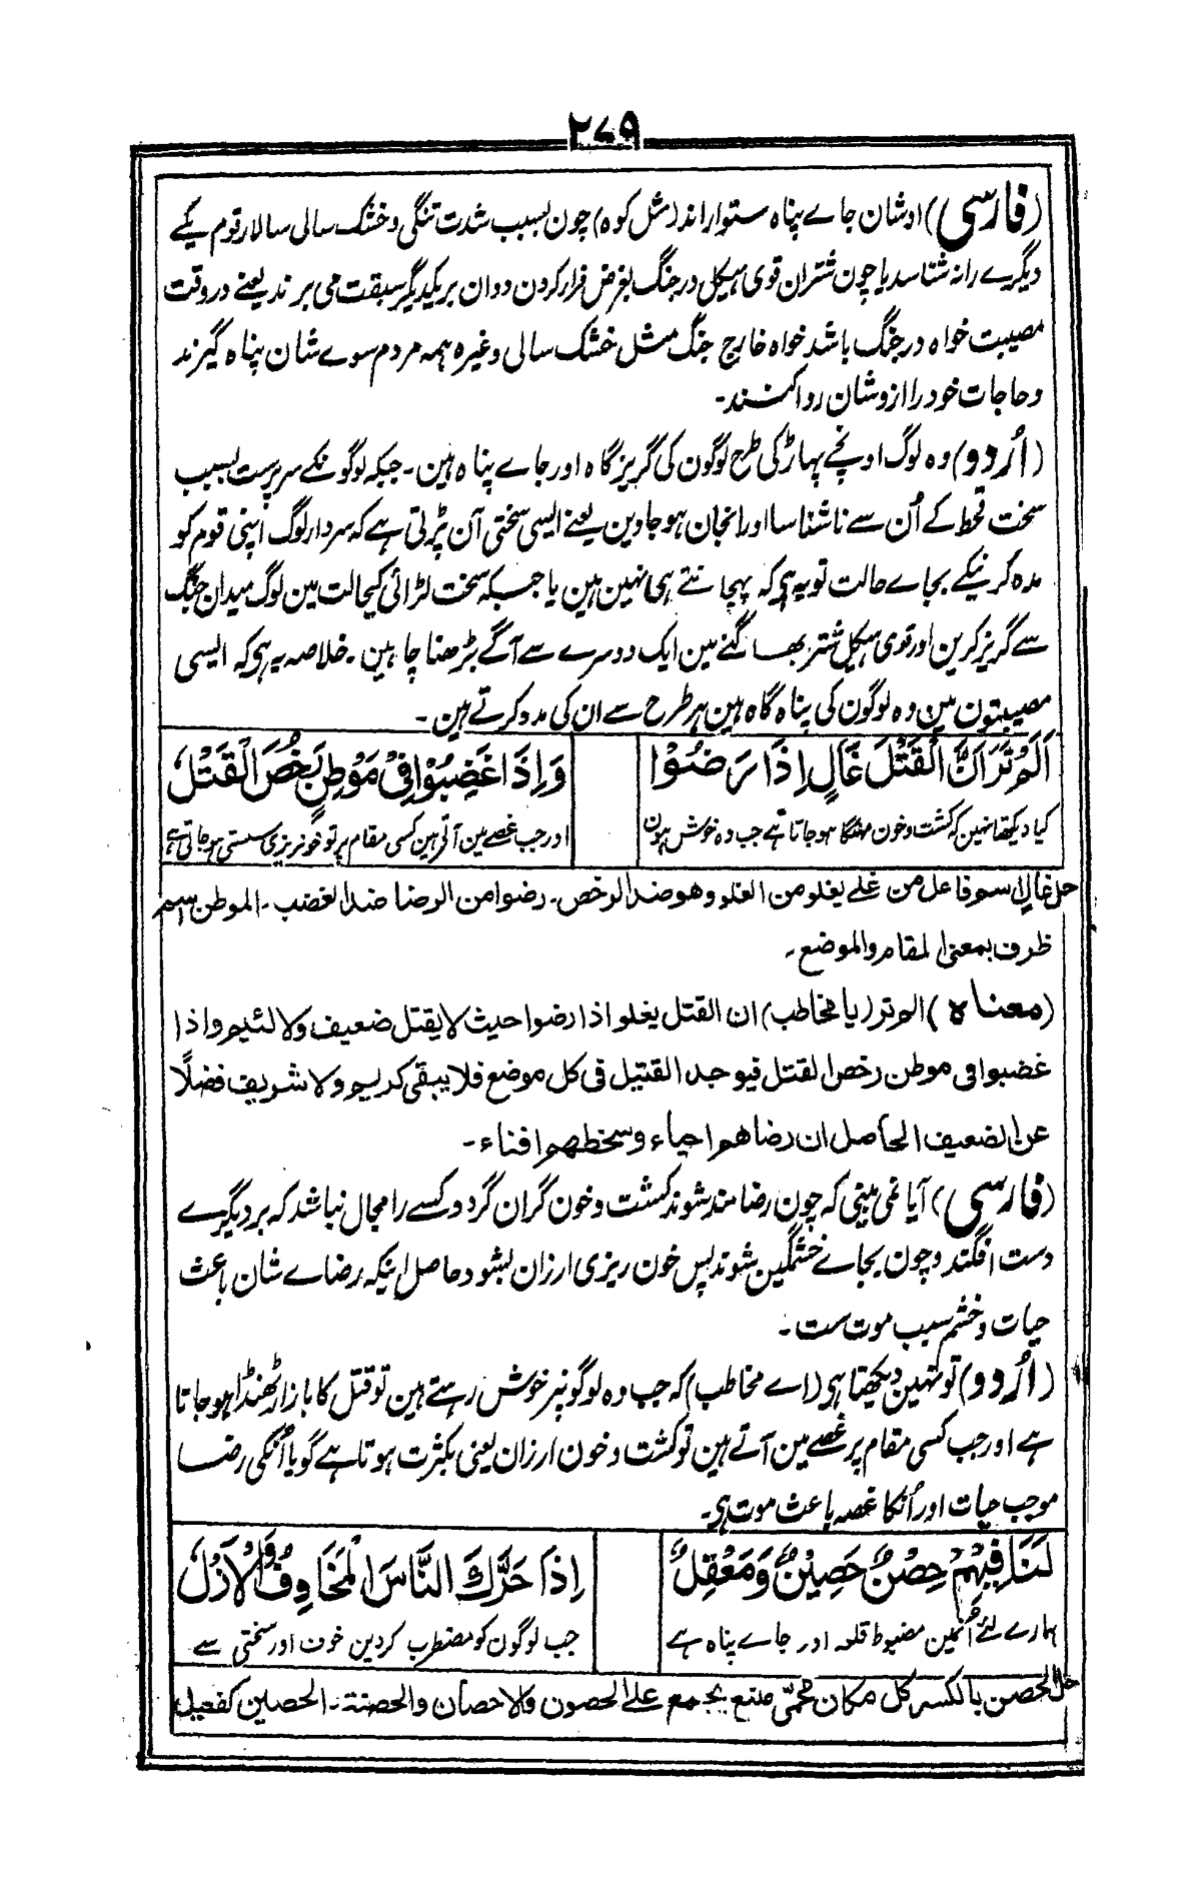 ۲۷۹
(فارسی) اوشان جاے پناہ ستوار اند (مثل کوہ) چون بسبب شدت تنگی و خشک سالی سالار قوم یکے
دیگرے را نہ شناسد یا چون شتران قوی ہیکل در جنگ بغرض فرار کردن دوان بریکدیگر سبقت می برند یعنے در وقت
مصیبت خواہ در جنگ باشد خواہ خارج جنگ مثل خشک سالی وغیرہ ہمہ مردم سوے شان پناہ گیرند
و حاجات خود را از وشان روا کنند۔
(اُردو) وہ لوگ اونچے پہاڑ کی طرح لوگون کی گریز گاہ اور جاے پناہ ہین۔ جبکہ لوگونکے سرپرست بسبب
سخت قحط کے اُن سے ناشناسا اور انجان ہو جاوین یعنے ایسی سختی آن پڑتی ہے کہ سردار لوگ اپنی قوم کو
مدد کرنیکے بجاے حالت تو یہ ہی کہ پہچانتے ہی نہین ہین یا جبکہ سخت لڑائی کیحالت مین لوگ میدان جنگ
سے گریز کرین اور قوی ہیکل شتر بھاگنے مین ایک دوسرے سے آگے بڑھنا چاہین۔ خلاصہ یہ ہی کہ ایسی
مصیبتون مین وہ لوگون کی پناہ گاہ ہین ہر طرح سے ان کی مدد کرتے ہین۔
اَلَمْ تَرَ اَنَّ الْقَتْلَ غَالٍ اِذَا رَضُوْا
وَاِذَا غَضِبُوْا فِیْ مَوْطِنٍ رَخُصَ الْقَتْلُ
کیا دیکھتا نہین کہ کشت و خون مہنگا ہو جاتا ہے جب وہ خوش ہون
اور جب غصے مین آتے ہین کسی مقام پر تو خونریزی سستی ہو جاتی ہے
حل غالٍ اسم فاعل من غلے یغلو من الغلو وهو ضد الرخص۔ رضوا من الرضا ضد الغضب۔ الموطن اسم
ظرف بمعنی المقام والموضع۔
(معناہ) الم تر (یا مخاطب) ان القتل یغلو اذا رضوا حیث لا یقتل ضعیف ولا لئیم واذا
غضبوا فی موطن رخص القتل فیوجد القتیل فی کل موضع فلا یبقی کریم ولا شریف فضلًا
عن الضعیف الحاصل ان رضاهم احیاء وسخطهم افناء۔
(فارسی) آیا نمی بینی کہ چون رضا مند شوند کشت و خون گران گردد کسے را مجال نباشد کہ بر دیگرے
دست افگند و چون بجاے خشمگین شوند پس خون ریزی ارزان بشود حاصل اینکہ رضاے شان باعث
حیات و خشم سبب موت ست۔
(اُردو) تو نہین دیکھتا ہی (اے مخاطب) کہ جب وہ لوگونپر خوش رہتے ہین تو قتل کا بازار ٹھنڈا ہو جاتا
ہے اور جب کسی مقام پر غصے مین آتے ہین تو کشت و خون ارزان یعنی بکثرت ہوتا ہے گویا اُنکی رضا
موجب حیات اور اُنکا غصہ باعث موت ہی۔
لَنَا فِیْهِمْ حِصْنٌ حَصِیْنٌ وَمَعْقِلٌ
اِذَا حَرَّكَ النَّاسَ الْمَخَاوِفُ وَالْاَزْلُ
ہمارے لئے اُنہین مضبوط قلعہ اور جاے پناہ ہے
جب لوگون کو مضطرب کردین خوف اور سختی سے
حل الحصن بالکسر کل مکان محمیّ منیع یجمع علے الحصون والاحصان والحصنة۔ الحصین کفعیل